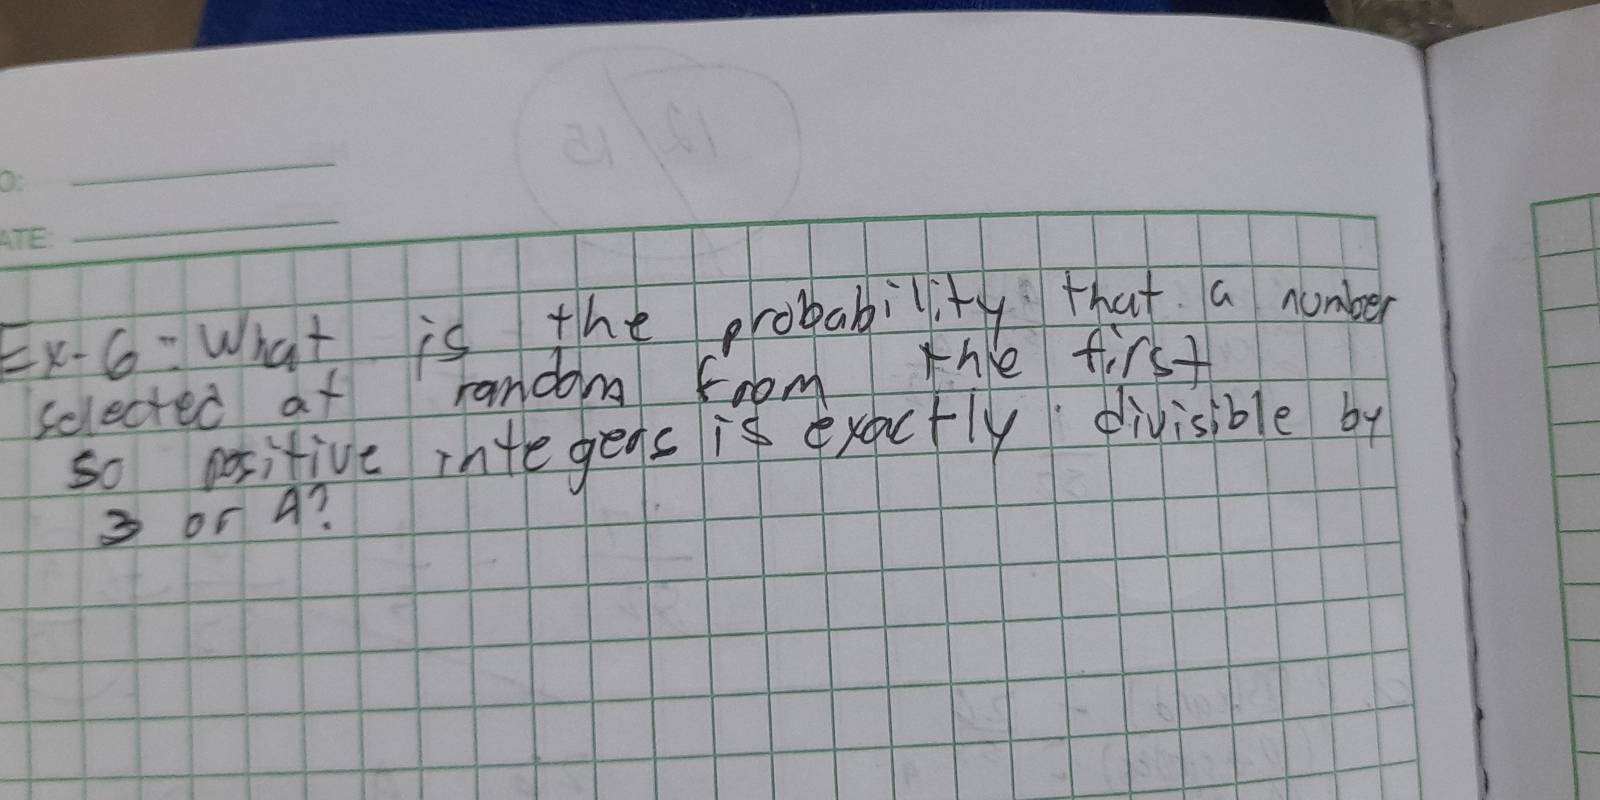 O:
ATE:
Ex-6: What is the probability that a number
selected at random from the first
50 positive integers is exactly divisible by
3 or 4?